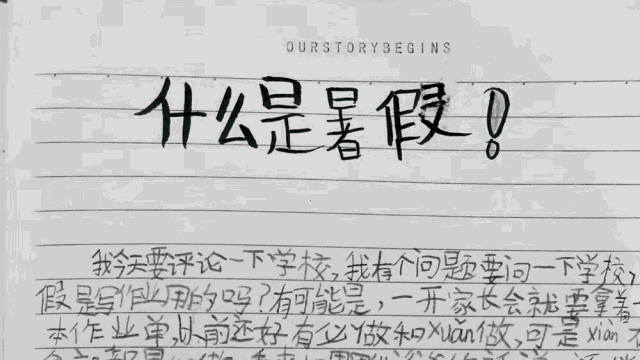 OURSTORYBEGINS
什么是暑假!
我今天要评论一下学校,我有个问题要问一下学校,
假是写作业用的吗?有可能是,一开家长会就要拿着
本作业单,以前还好有必做和xuǎn做,可是xiàn